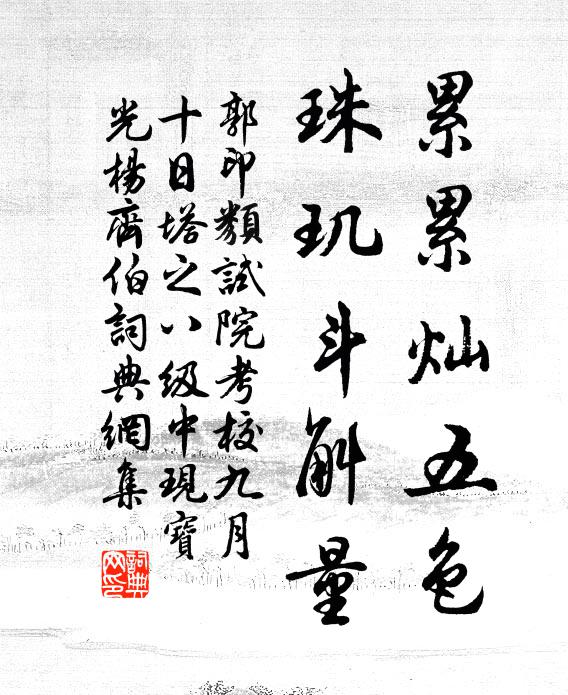 累累灿五色
珠玑斗斛量
郭印類試院考校九月
十日塔之八级中現寶
光楊齊伯詞典網集
詞典
网印